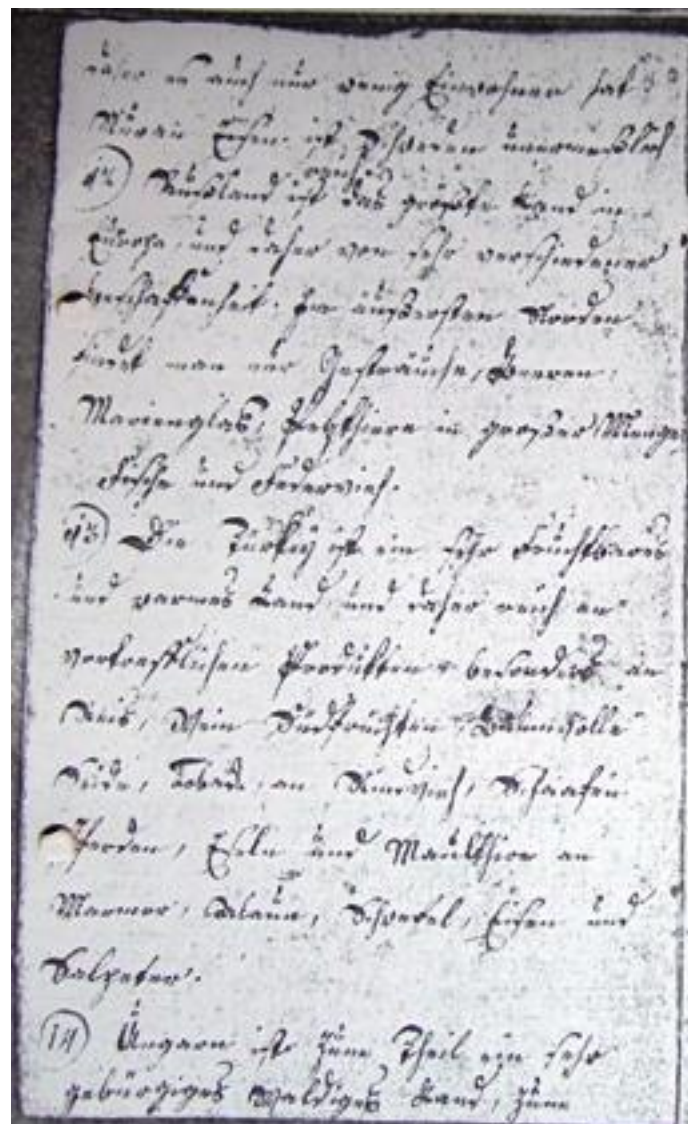 daher es auch nur wenig Einwohner hat.
Eisen ist Schweden unermesslich
12) Russland ist das größte Land in
Europa, und daher von sehr verschiedener
Beschaffenheit. Im äußersten Norden
findet man nur Gesträuche, Beeren,
Marienglas, Pelzthiere in großer Menge
Fische und Federvieh.
13) Die Türkey ist ein sehr fruchtbares
und warmes Land, und daher reich an
vortrefflichen Produkten besonders an
Reis, Wein Südfrüchten, Baumwolle
Seide, Toback, an Rindvieh, Schaafen
Pferden, Eseln und Maulthiere an
Marmor, Alaun, Schwefel, Eisen und
Salpeter.
14) Ungarn ist zum Theil ein sehr
gebürgiges waldiges Land, zum